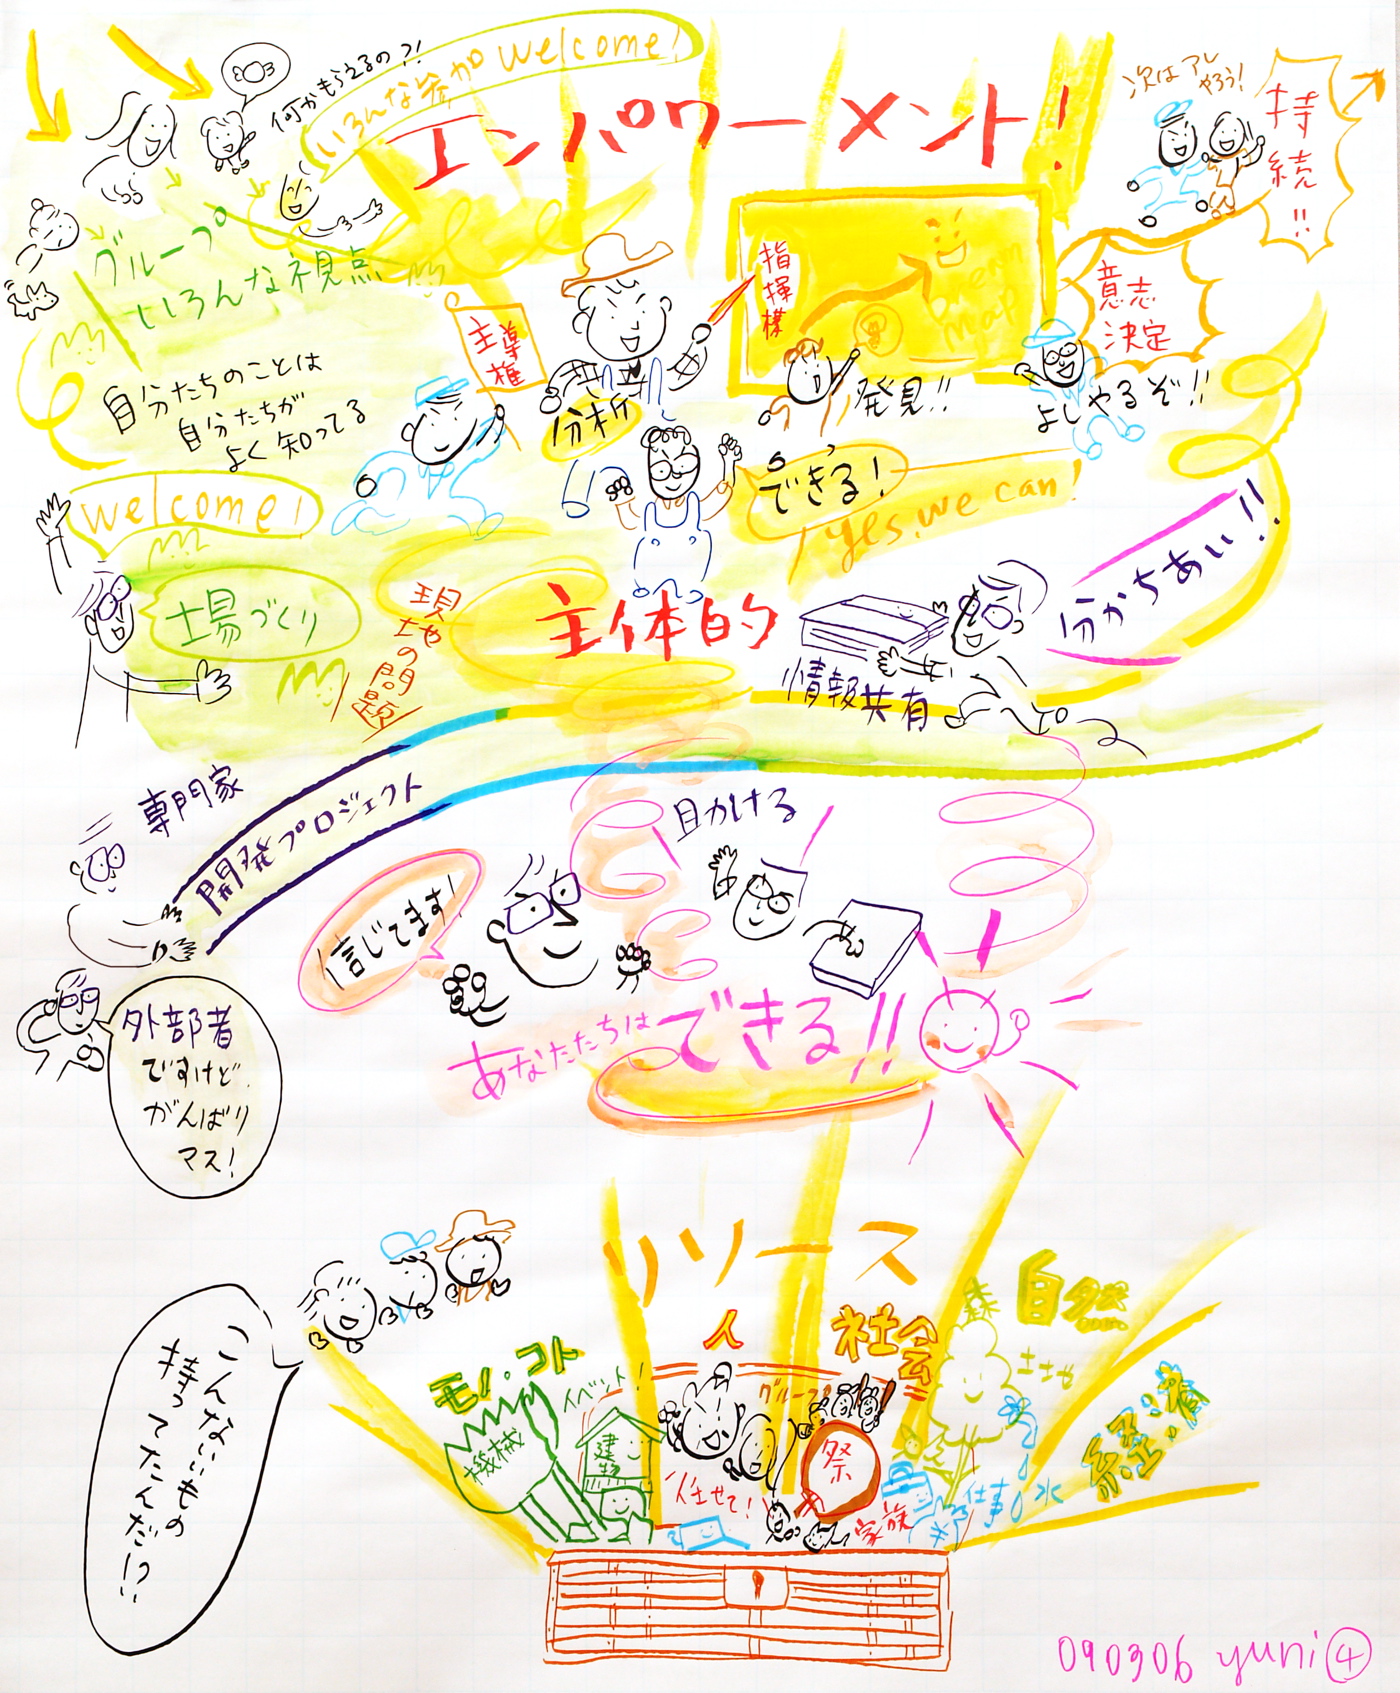 何かもらえるの?!
いろんな絵がwelcome!
エンパワーメント!
次はアレ
やろう!
持続!!
グループ
いろんな視点
主導権
指揮棒
Dream
map
意志
決定
自分たちのことは
自分たちが
よく知ってる
分析
発見!!
よしやるぞ!!
welcome!
できる!
yes, we can!
場づくり
現地の問題
主体的
分かちあい!!
情報共有
専門家
開発プロジェクト
目かける
信じてます!
あなたたちは
できる!!
外部者
ですけど、
がんばり
マス!
リソース
人
社会
自然
森
土地
モノ・コト
イベント!
グループ
経済
機械
建物
祭
任せて!
仕事
水
家族
こんないいもの
持ってたんだ!?
090306 yuni④